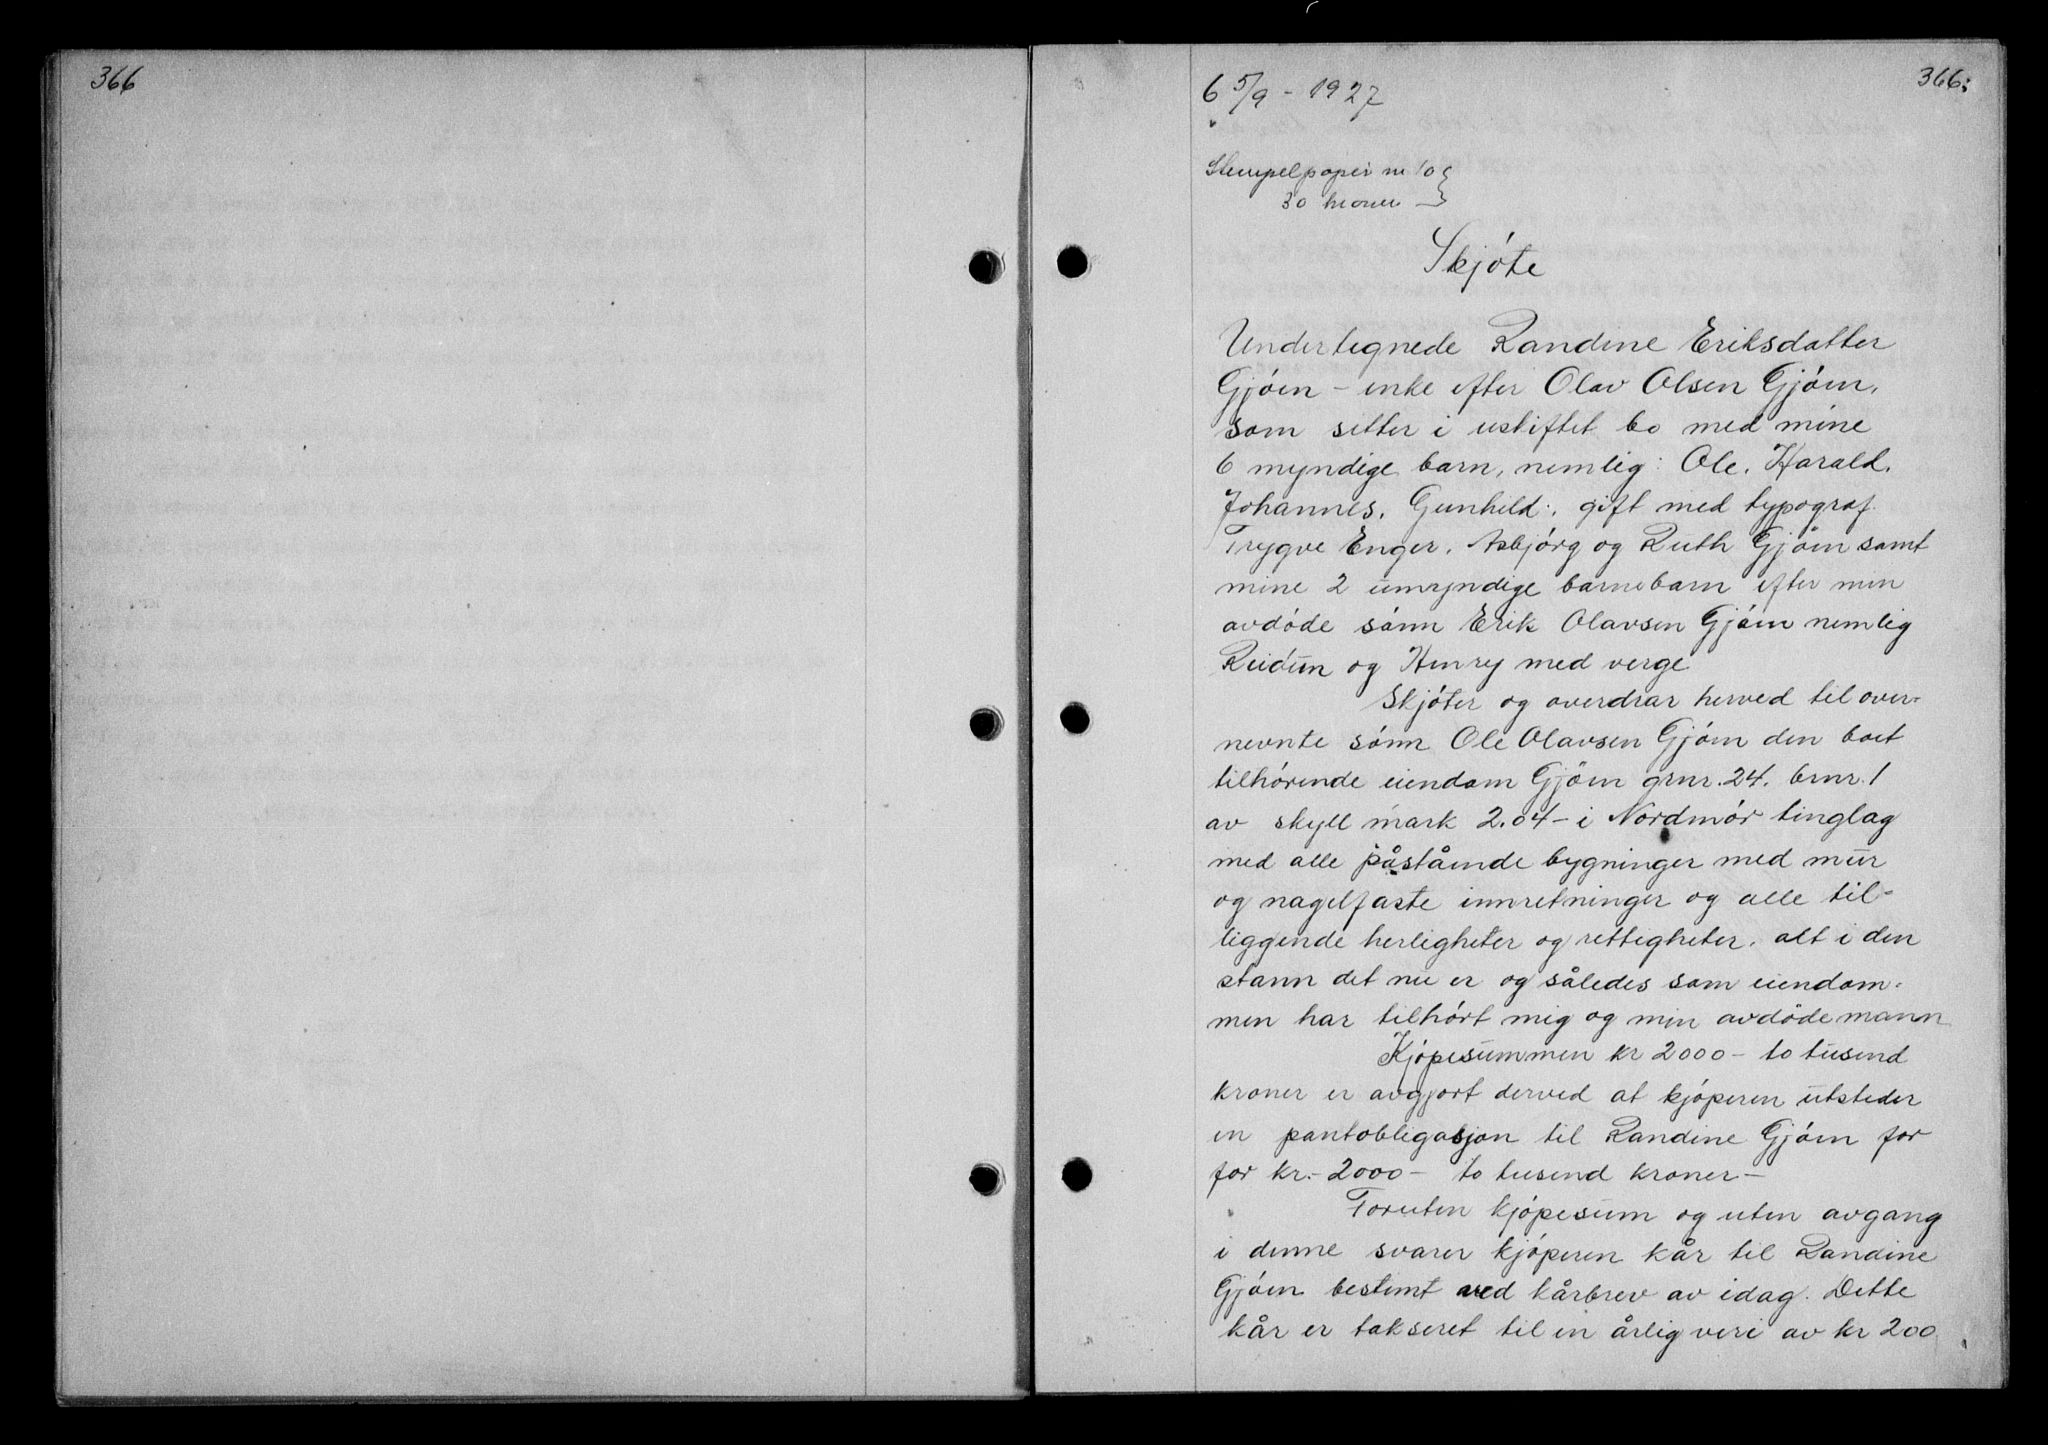 366
366:
6 5/9 - 1927
Stempelpapir nr 10
30 kroner
Skjóte
Undertegnede Randine Eriksdatter
Gjóen - enke efter Olav Olsen Gjóen,
som sitter i uskiftet bo med mine
6 myndige barn, nemlig: Ole, Harald,
Johannes, Gunhild, gift med typograf
Trygve Enger, Asbjórg og Ruth Gjóen samt
mine 2 umyndige barnebarn efter min
avdóde sónn Erik Olavsen Gjóen nemlig
Reidun og Henry med verge
Skjóter og overdrar herved til over-
nevnte sónn Ole Olavsen Gjóen den boet
tilhórende eiendom Gjóen grnr. 24, brnr. 1
av skyll mark 2.04 - i Nordmór tinglag
med alle påstående bygninger med mur
og nagelfaste innretninger og alle til-
liggende herligheter og rettigheter, alt i den
stann det nu er og således som eiendom-
men har tilhórt mig og min avdóde mann
Kjópesummen kr 2000 - to tusend
kroner er avgjort derved at kjóperen utsteder
en pantobligasjon til Randine Gjóen for
for kr. - 2000 - to tusend kroner -
Foruten kjópesum og uten avgang
i denne svarer kjóperen kår til Randine
Gjóen bestemt ved kårbrev av idag. Dette
kår er takseret til en årlig veri av kr 200